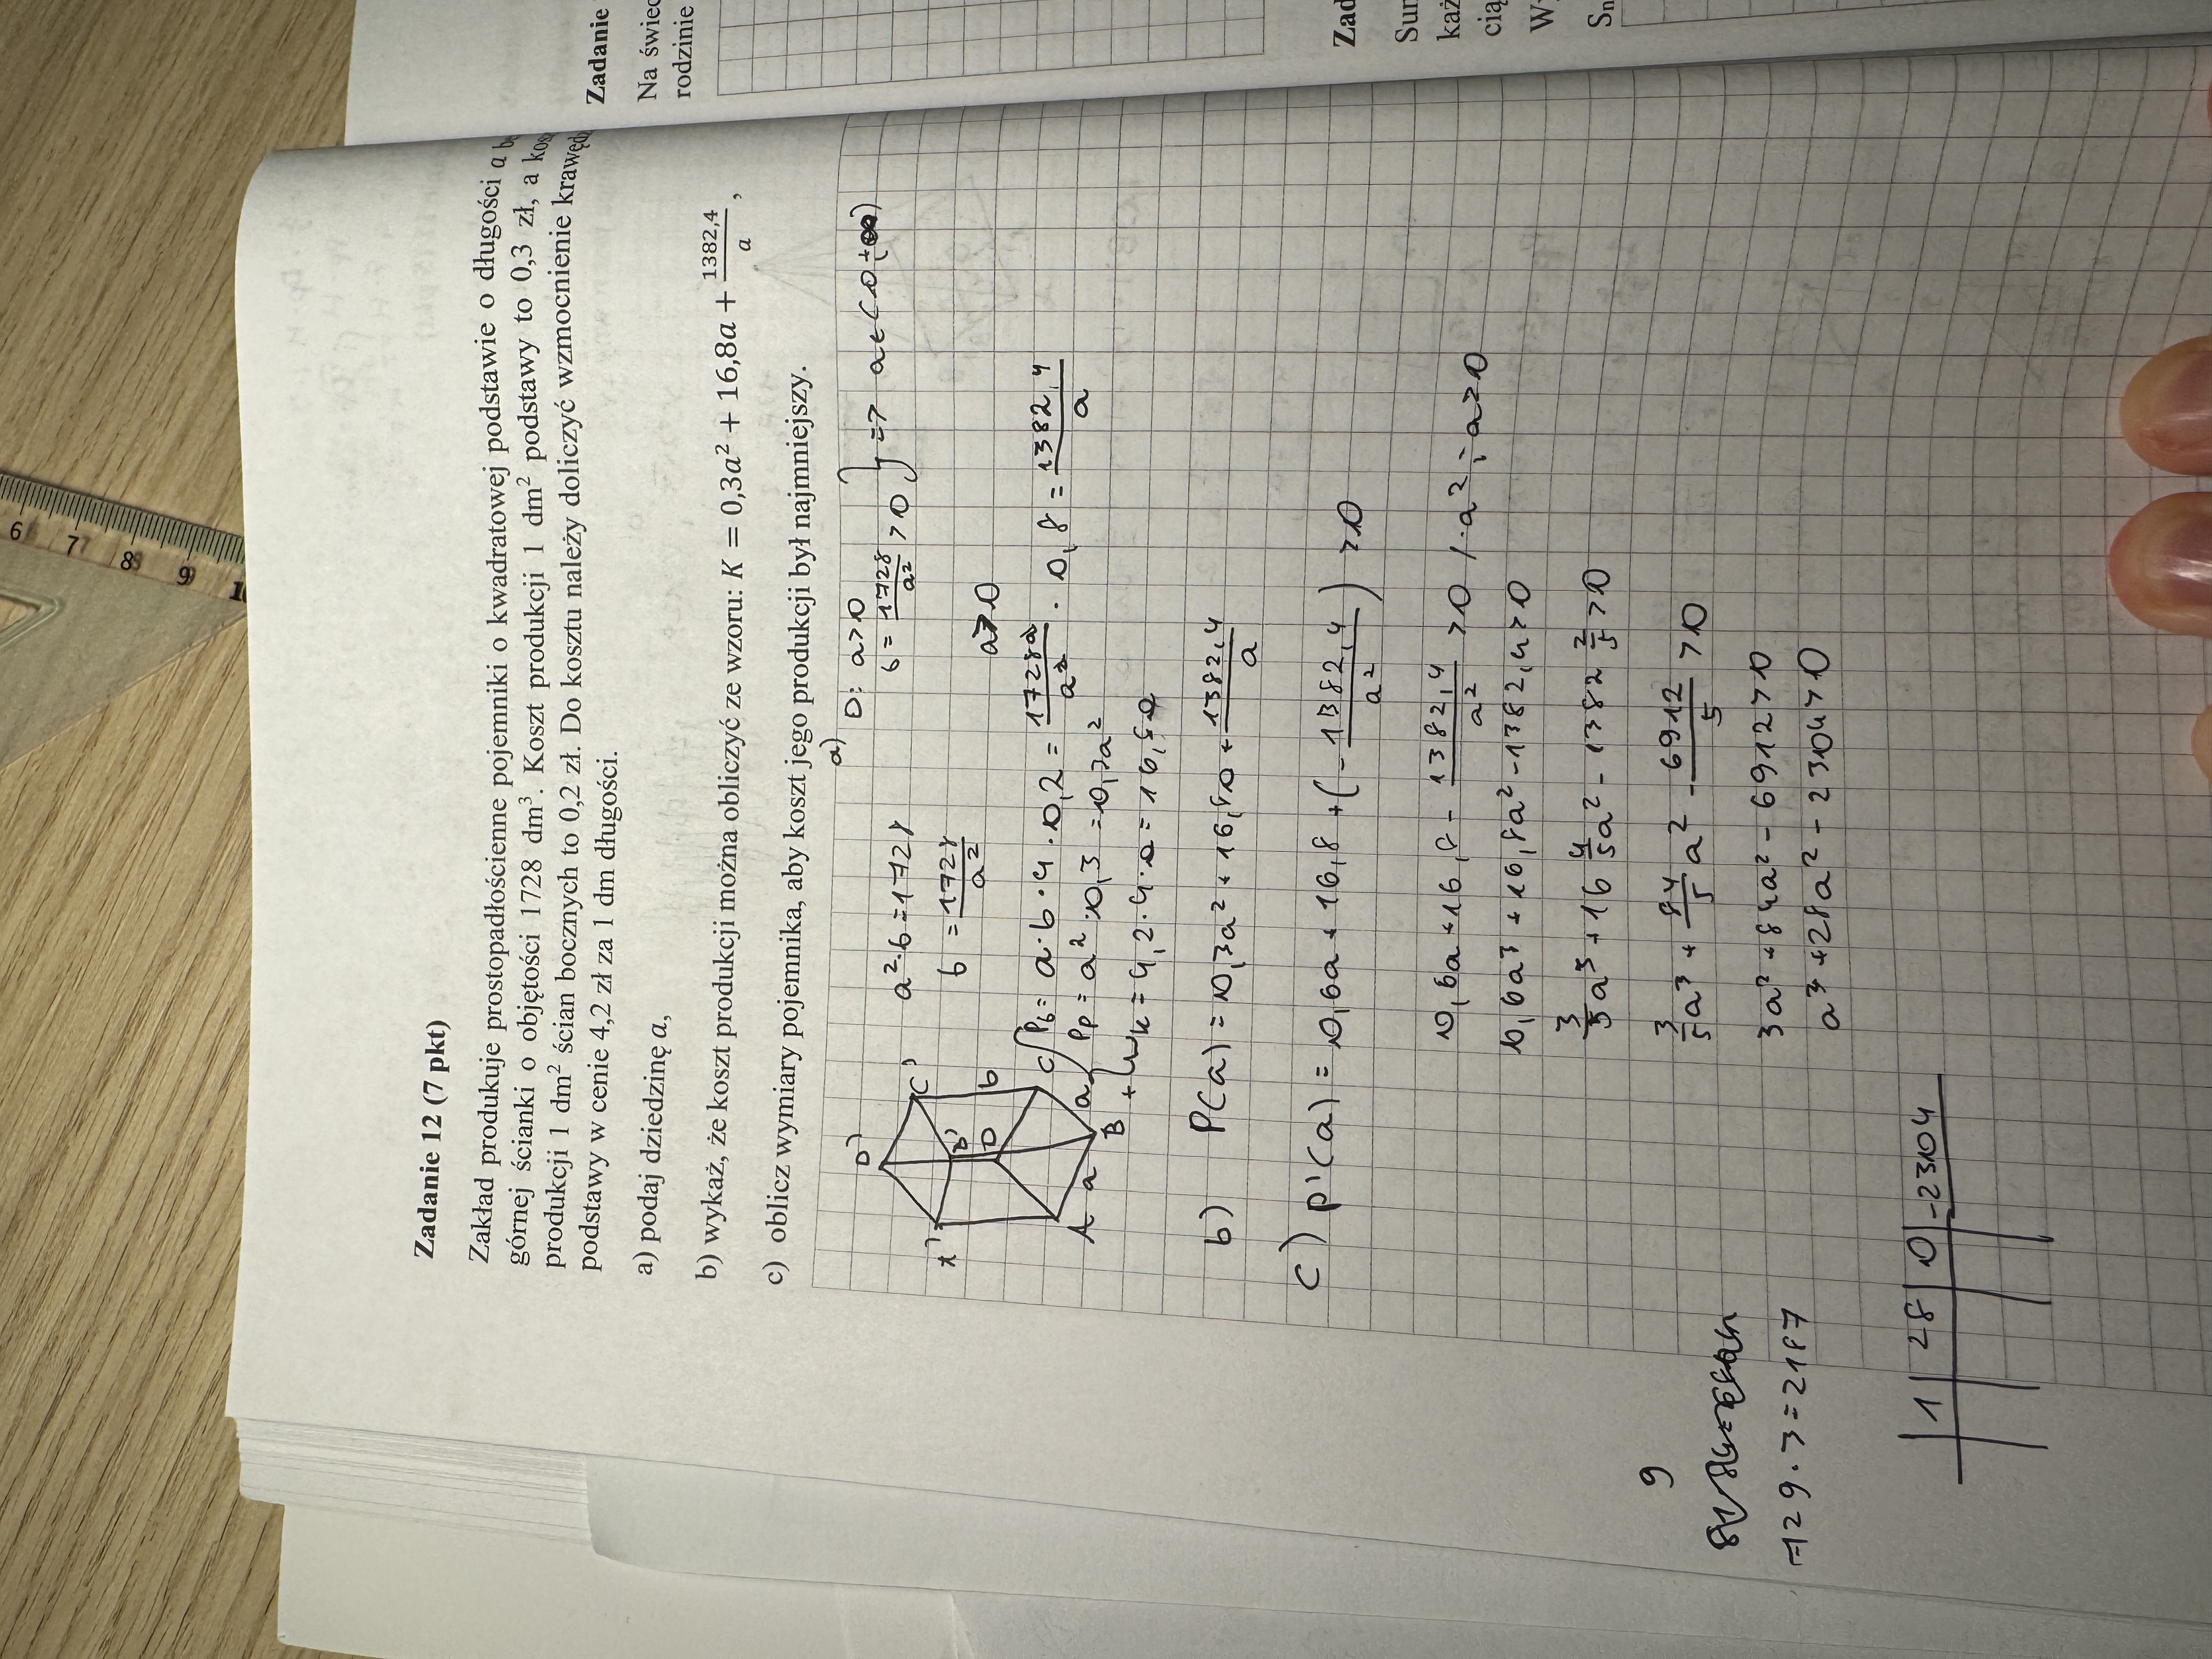 Zadanie 12 (7 pkt)
Zakład produkuje prostopadłościenne pojemniki o kwadratowej podstawie o długości a
górnej ścianki o objętości 1728 dm³. Koszt produkcji 1 dm² podstawy to 0,3 zł, a
produkcji 1 dm² ścian bocznych to 0,2 zł. Do kosztu należy doliczyć wzmocnienie
podstawy w cenie 4,2 zł za 1 dm długości.
a) podaj dziedzinę a,
b) wykaż, że koszt produkcji można obliczyć ze wzoru: K = 0,3a² + 16,8a + 1382,4/a ,
c) oblicz wymiary pojemnika, aby koszt jego produkcji był najmniejszy.
a)
D: a>0
b = 1728/a² > 0 } => a∈(0;+∞)
a²·b=1728
b = 1728/a²
a>0
D' C' A' B' D C b A a B a
Pb = a·b·4·0,2 = 1728a/a² · 0,8 = 1382,4/a
Pp = a²·0,3 = 0,3a²
+ Wk = 4,2·4·a = 16,8a
b) P(a) = 0,3a² + 16,8a + 1382,4/a
c) P'(a) = 0,6a + 16,8 + (-1382,4/a²) >0
0,6a + 16,8 - 1382,4/a² >0 /·a² ; a>0
0,6a³ + 16,8a² - 1382,4>0
3/5a³ + 16 4/5a² - 1382 2/5 >0
3/5a³ + 84/5 a² - 6912/5 >0
3a² + 84a² - 6912>0
a³ + 28a² - 2304>0
9
=729·3=2187
1 | 28 | 0 | -2304
Zadanie
Na świec
rodzinie
Zad
Sur
każ
cią
W
Sn
6 7 8 9